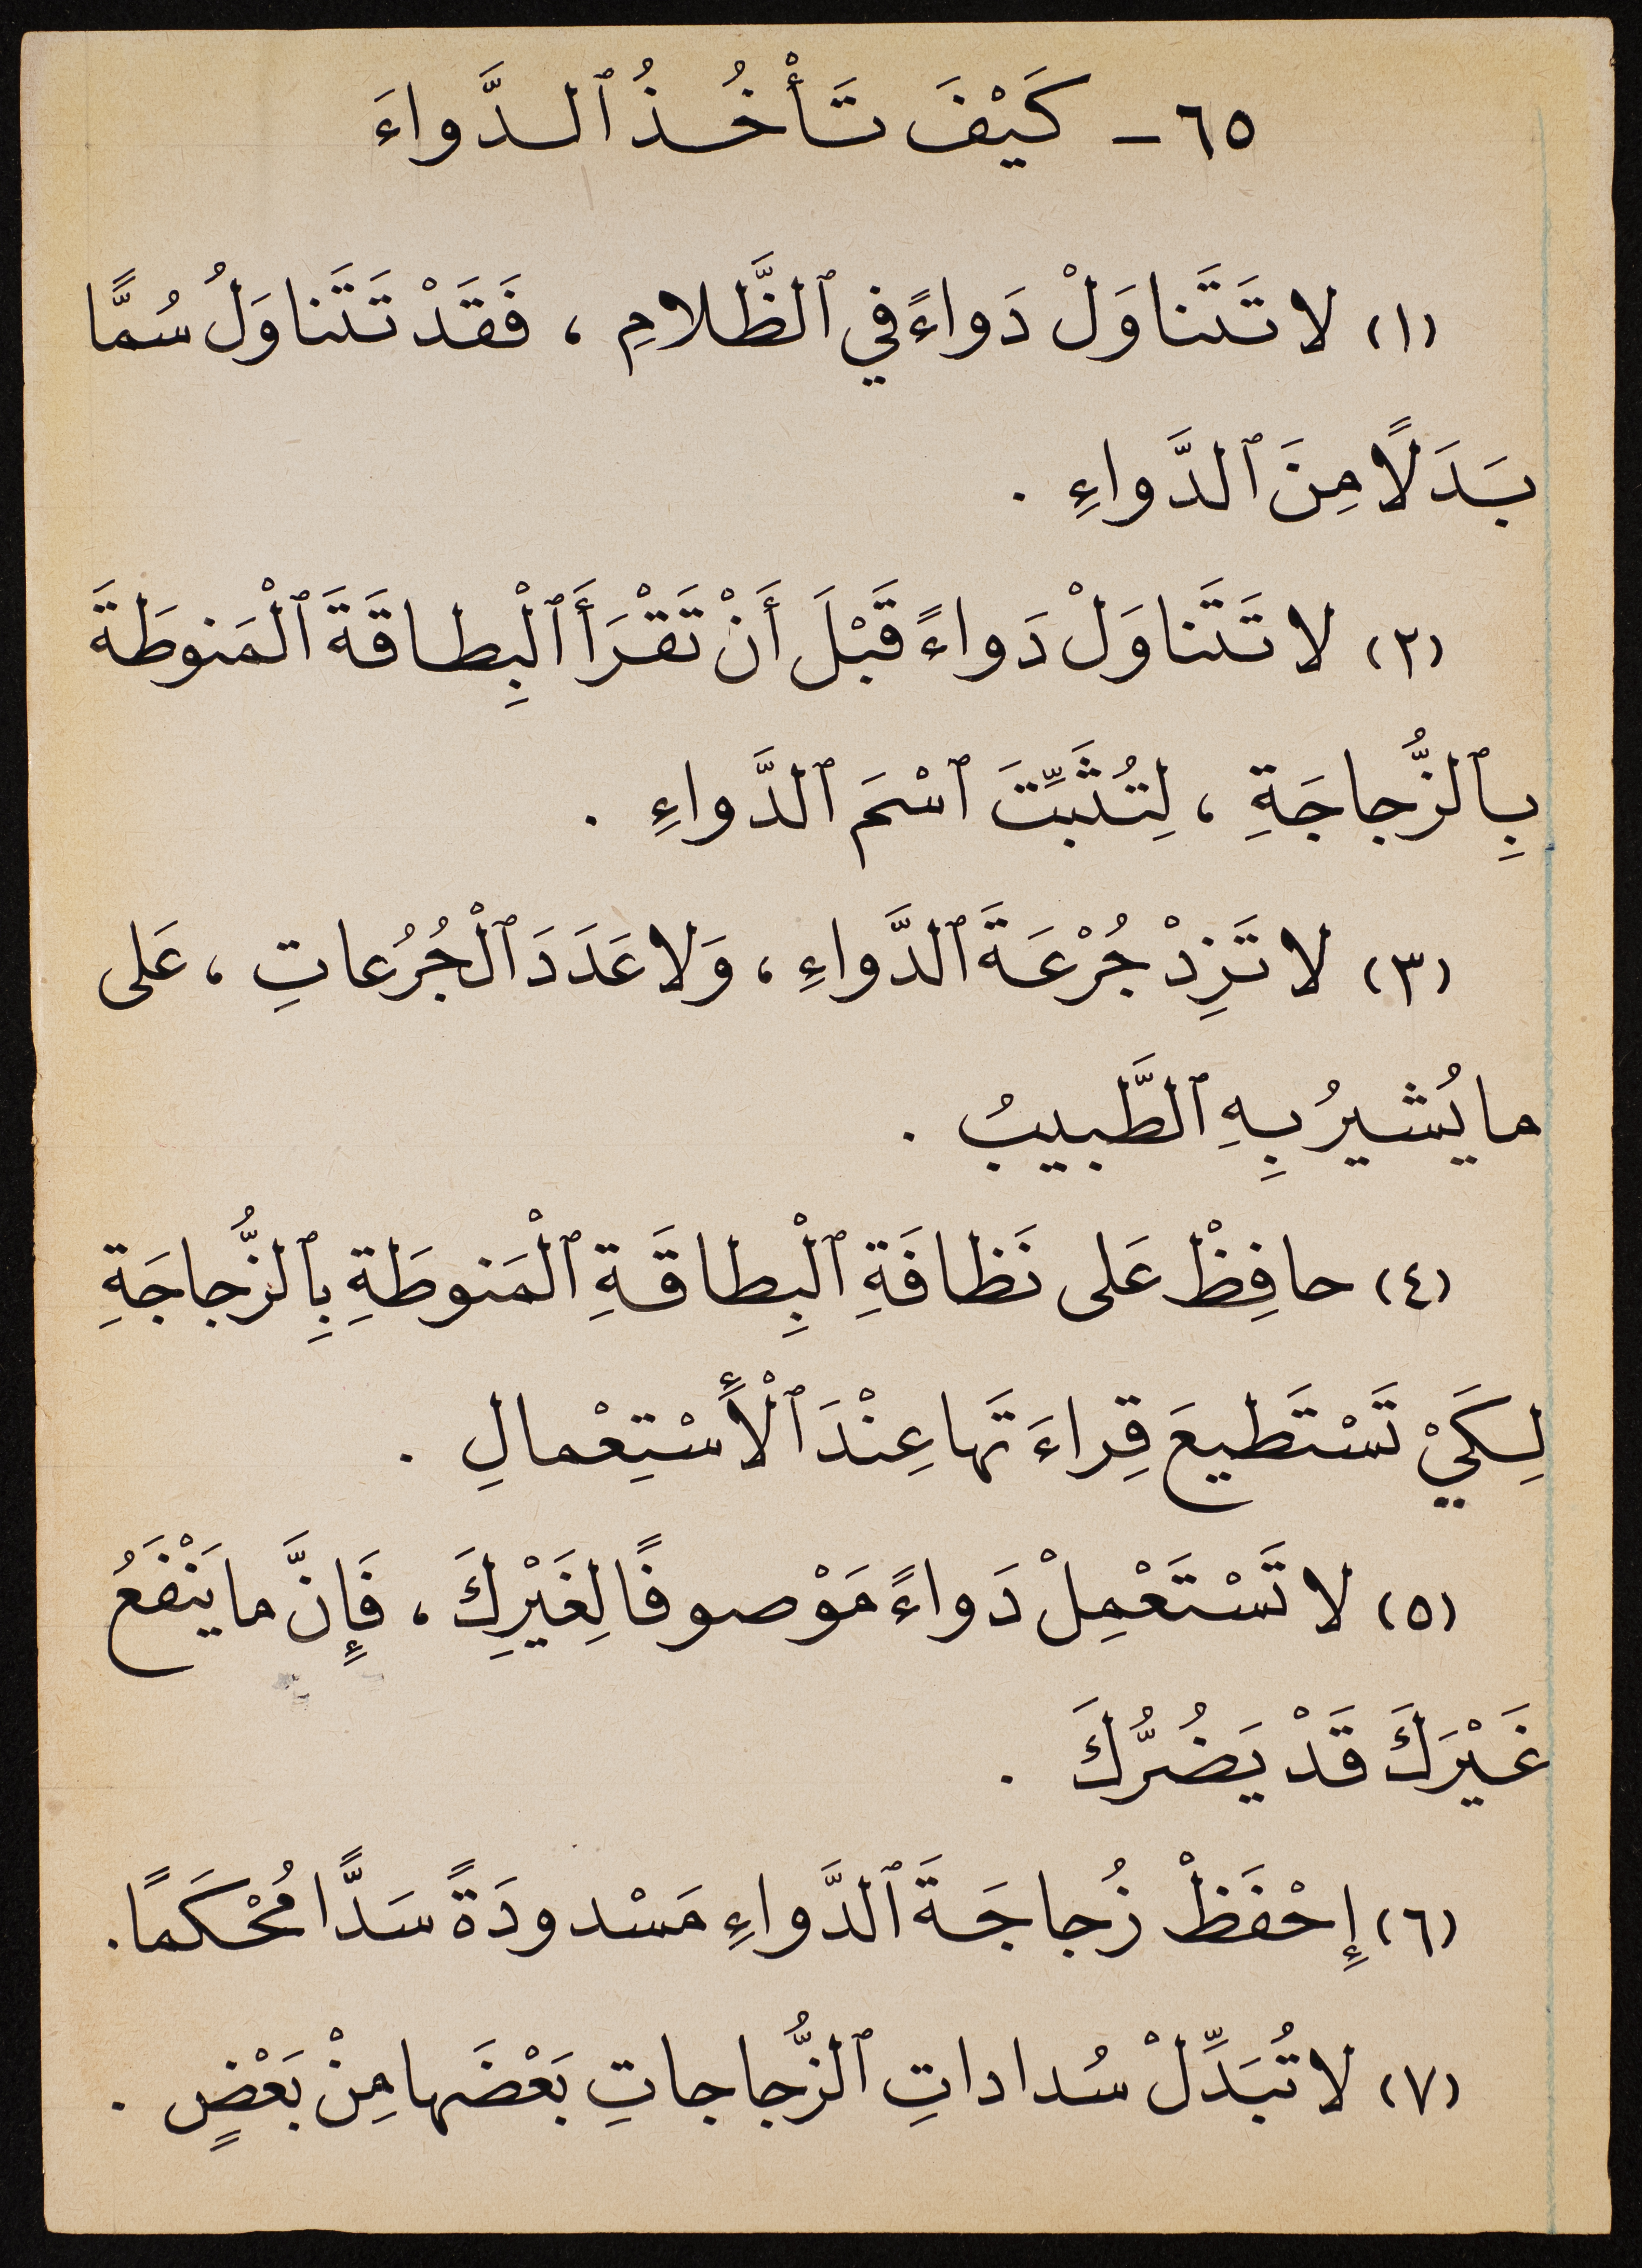 ٦٥ - كَيْفَ تَأْخُذُ ٱلدَّواءَ
(١) لا تَتَناوَلْ دَواءً في ٱلظَّلامِ ، فَقَدْ تَتَناوَلُ سُمًّا
بَدَلًا مِنَ ٱلدَّواءِ .
(٢) لا تَتَناوَلْ دَواءً قَبْلَ أَنْ تَقْرَأَ ٱلْبِطاقَةَ ٱلْمَنوطَةَ
بِٱلزُّجاجَةِ ، لِتُثَبِّتَ ٱسْمَ ٱلدَّواءِ .
(٣) لا تَزِدْ جُرْعَةَ ٱلدَّواءِ ، وَلا عَدَدَ ٱلْجُرُعاتِ ، عَلى
ما يُشيرُ بِهِ ٱلطَّبيبُ .
(٤) حافِظْ عَلى نَظافَةِ ٱلْبِطاقَةِ ٱلْمَنوطَةِ بِٱلزُّجاجَةِ
لِكَيْ تَسْتَطيعَ قِراءَتَها عِنْدَ ٱلْأِسْتِعْمالِ .
(٥) لا تَسْتَعْمِلْ دَواءً مَوْصوفًا لِغَيْرِكَ ، فَإِنَّ ما يَنْفَعُ
غَيْرَكَ قَدْ يَضُرُّكَ .
(٦) إِحْفَظْ زُجاجَةَ ٱلدَّواءِ مَسْدودَةً سَدًّا مُحْكَمًا .
(٧) لا تُبَدِّلْ سُداداتِ ٱلزُّجاجاتِ بَعْضَها مِنْ بَعْضٍ .